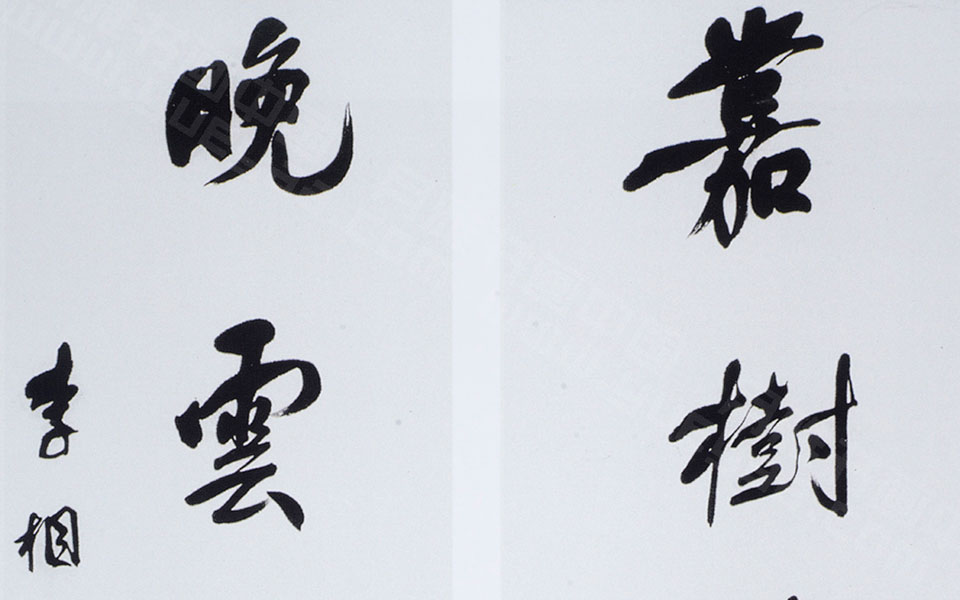 嘉樹
晚雲
李相